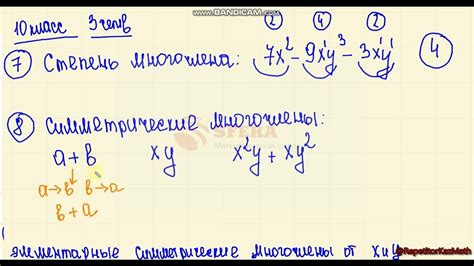 www.BANDICAM.com
10 класс 3 четв
2 4 2
⑦ Степень многочлена: 7x² - 9x¹y³ - 3x¹y¹ ④
⑧ Симметрические многочлены:
SFERA
a + b xy x²y + xy²
a→b b→a
b + a
элементарные симметрические многочлены от x и y
@RepetitorKazMath